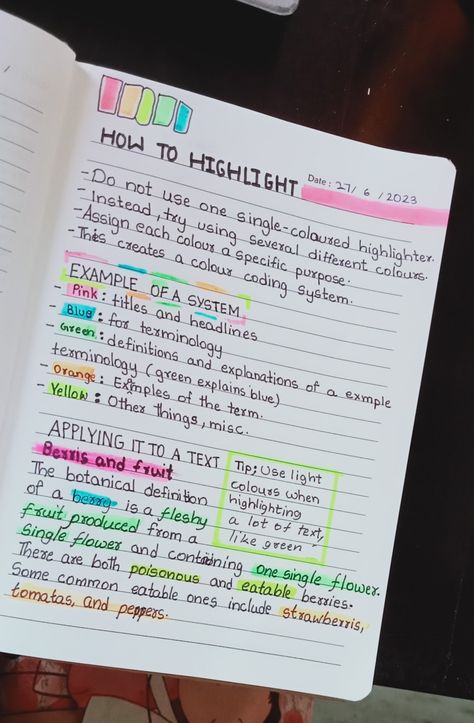 HOW TO HIGHLIGHT
Date: 27/6/2023
-Do not use one single-coloured highlighter.
-Instead, try using several different colours.
-Assign each colour a specific purpose.
-This creates a colour coding system.
EXAMPLE OF A SYSTEM
- Pink: titles and headlines
- Blue: for terminology
- Green: definitions and explanations of a exmple
terminology (green explains blue)
- Orange: Examples of the term.
- Yellow: Other things, misc.
APPLYING IT TO A TEXT
Berris and fruit
The botanical definition
of a berry is a fleshy
fruit produced from a
single flower and containing one single flower.
There are both poisonous and eatable berries.
Some common eatable ones include strawberris,
tomatas, and peppers.
Tip: Use light
colours when
highlighting
a lot of text,
like green